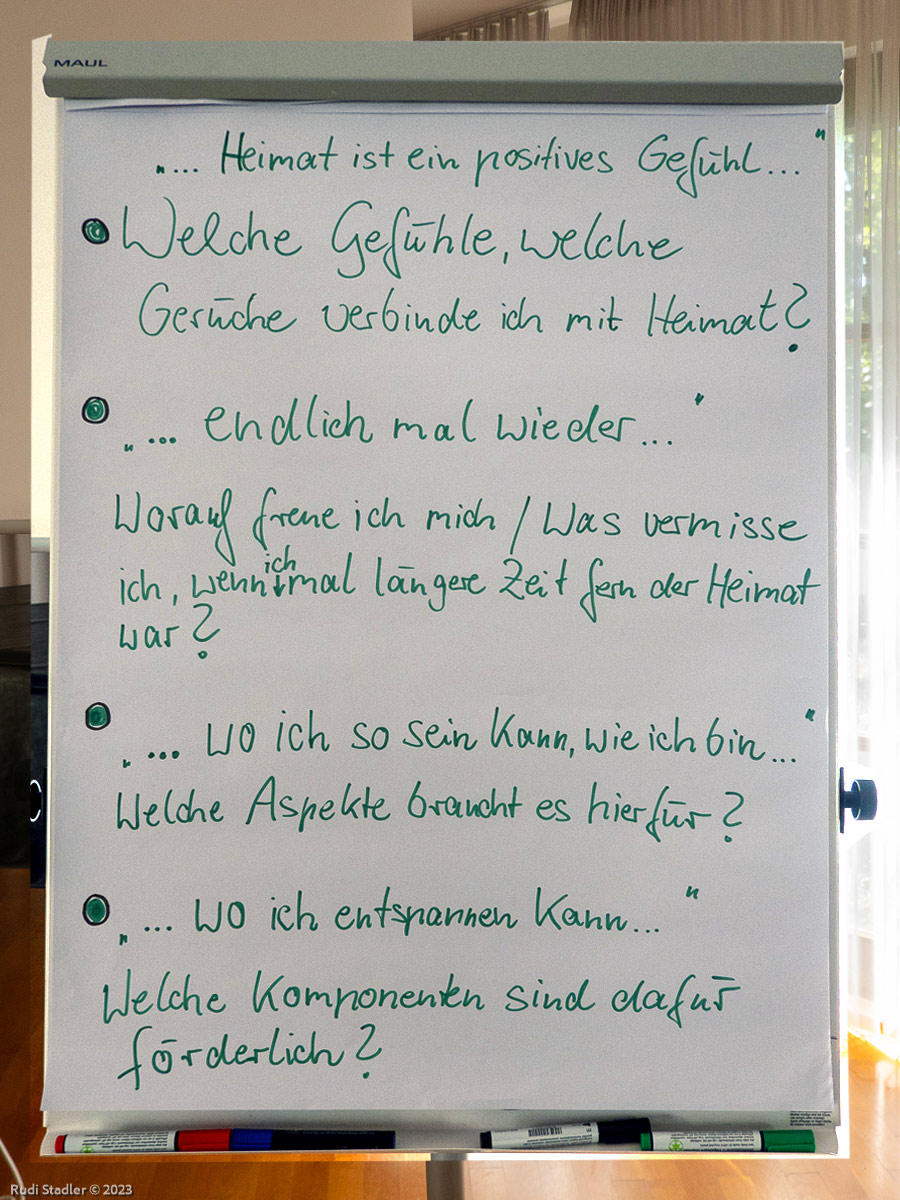 MAUL
"... Heimat ist ein positives Gefühl..."
Welche Gefühle, welche
Gerüche verbinde ich mit Heimat?
"... endlich mal wieder..."
Worauf freue ich mich / Was vermisse
ich, wenn ich mal längere Zeit fern der Heimat
war?
"... wo ich so sein kann, wie ich bin..."
Welche Aspekte braucht es hierfür?
"... wo ich entspannen kann..."
Welche Komponenten sind dafür
förderlich?
Rudi Stadler © 2023